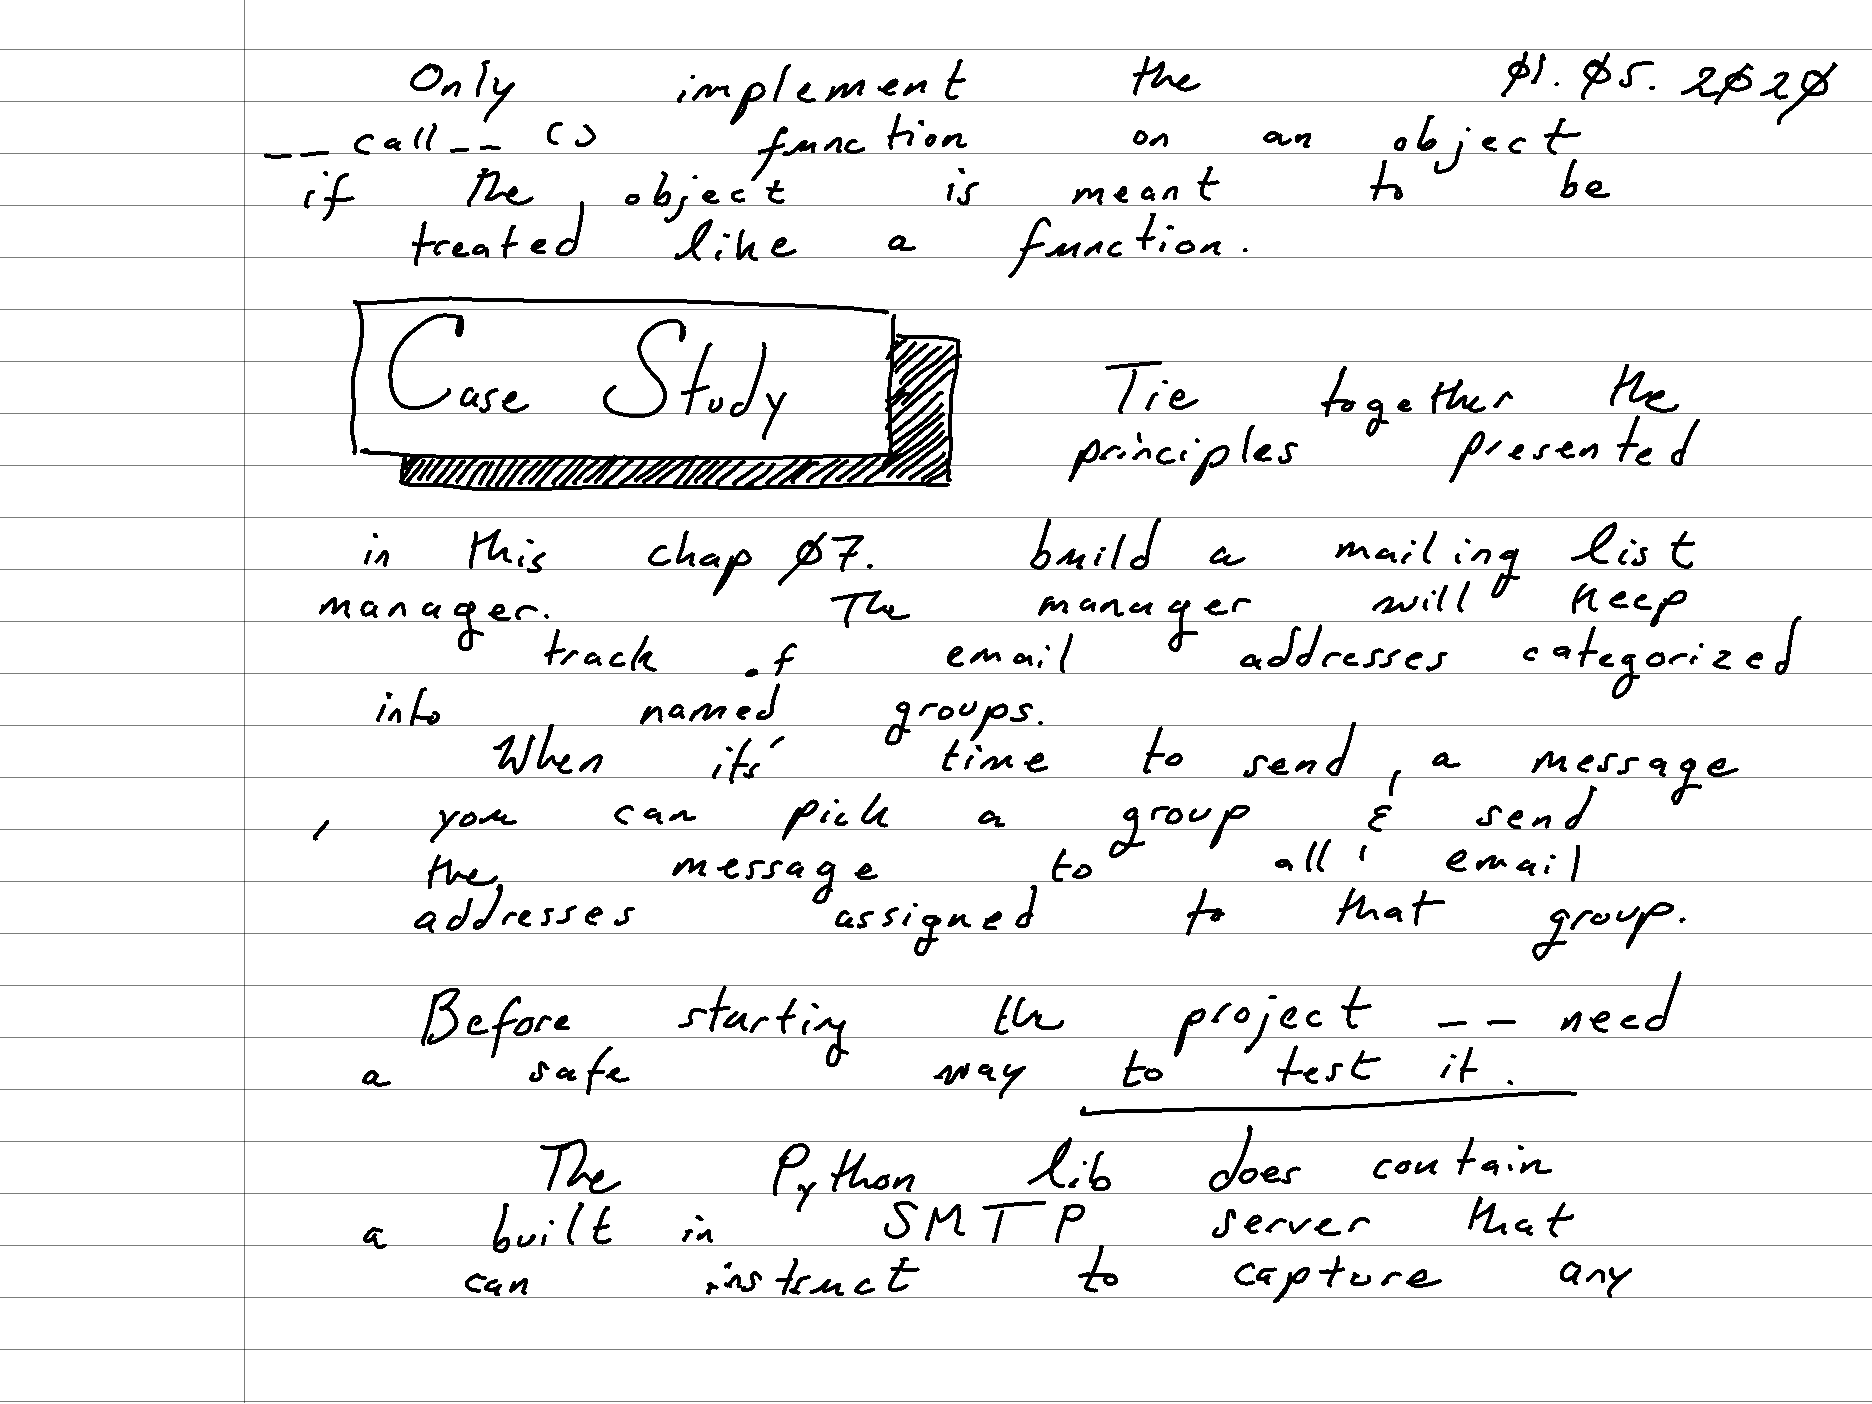 Only implement the 01.05.2020
__call__() function on an object
if the object is meant to be
treated like a function.
Case Study
Tie together the
principles presented
in this chap 07. build a mailing list
manager. The manager will keep
track of email addresses categorized
into named groups.
When its' time to send, a message
, you can pick a group & send
the message to all email
addresses assigned to that group.
Before starting the project -- need
a safe way to test it.
The Python lib does contain
a built in SMTP server that
can instruct to capture any